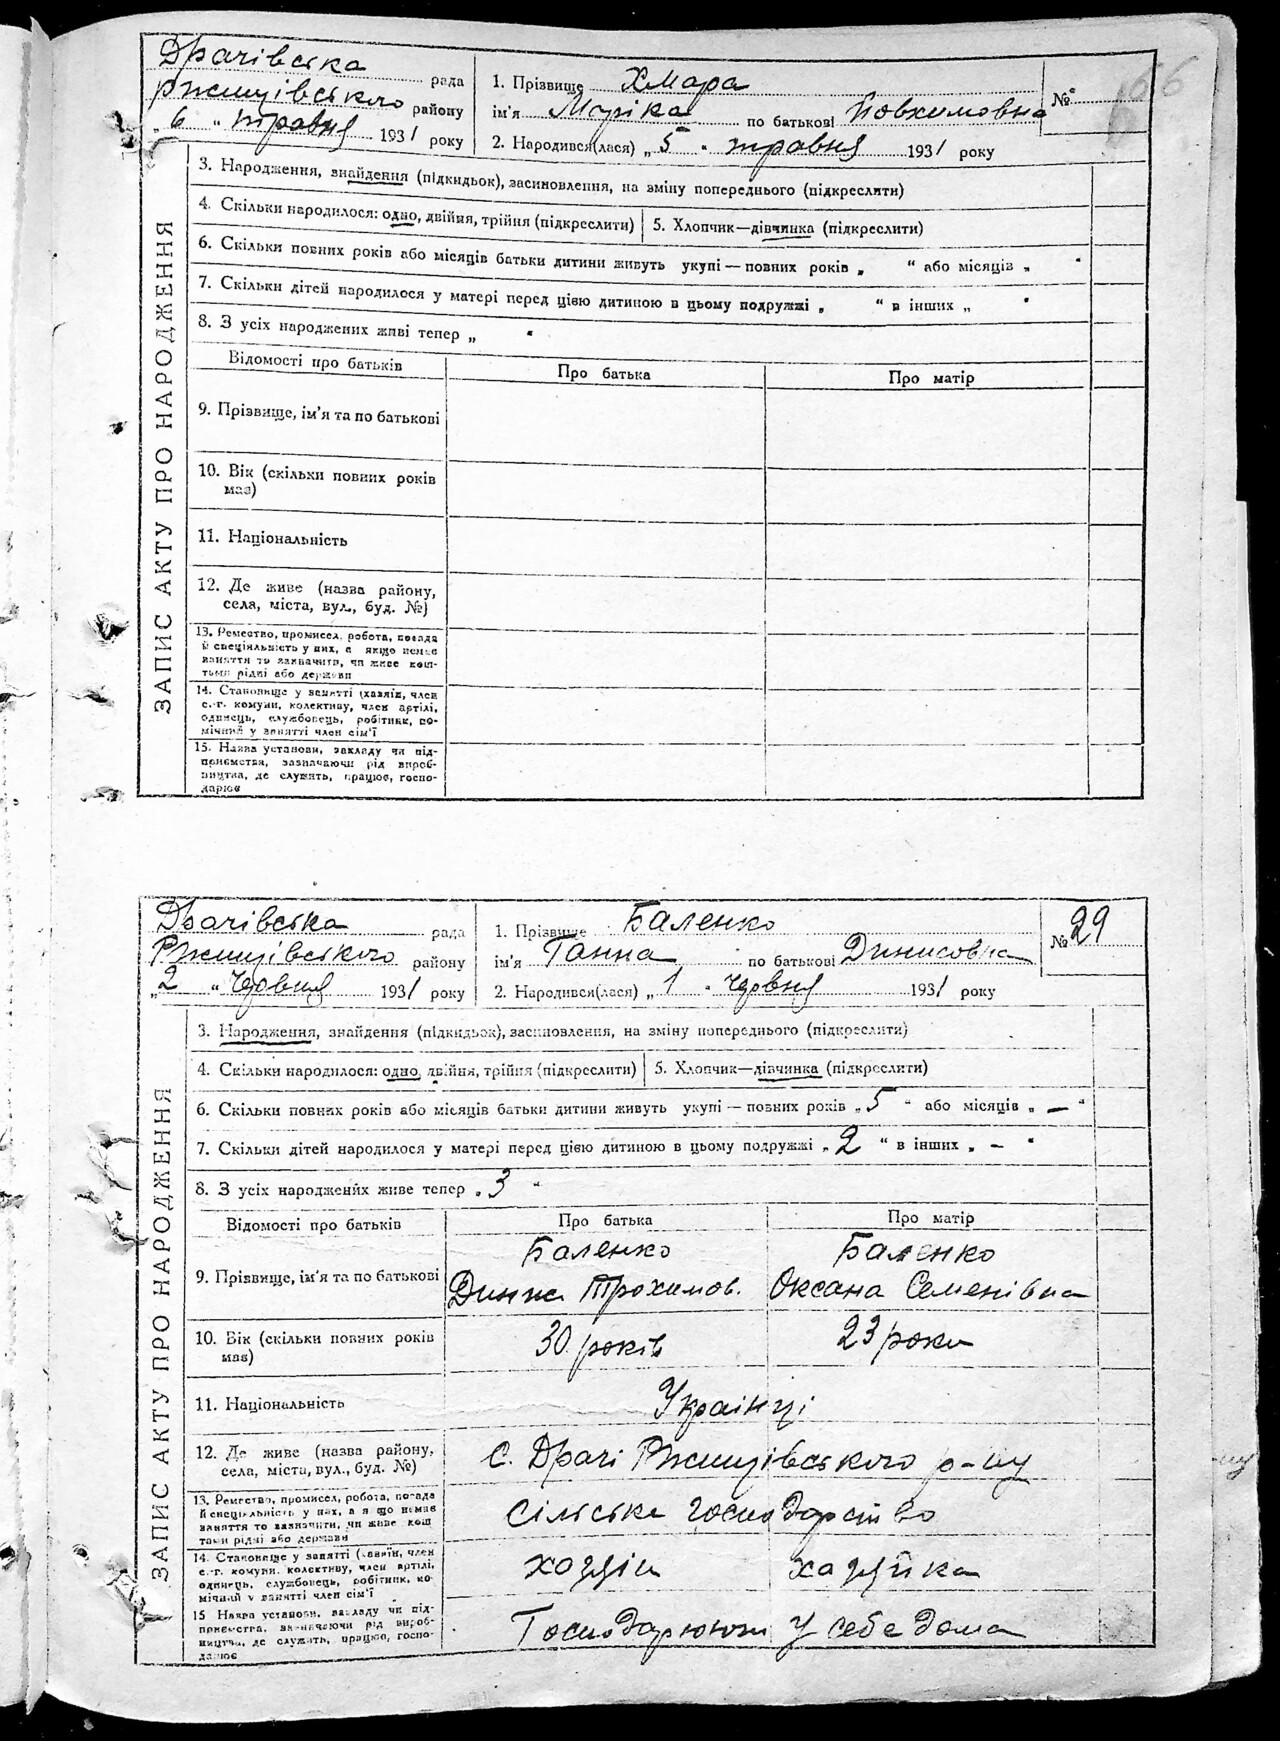 66
Драчівська рада
Ржищівського району
„ 6 “ травня 1931 року
1. Прізвище Хмара
ім'я Маріка по батькові Йовхимовна
№
2. Народився(лася) „ 5 “ травня 1931 року
ЗАПИС АКТУ ПРО НАРОДЖЕННЯ
3. Народження, знайдення (підкидьок), засиновлення, на зміну попереднього (підкреслити)
4. Скільки народилося: одно, двійня, трійня (підкреслити) 5. Хлопчик—дівчинка (підкреслити)
6. Скільки повних років або місяців батьки дитини живуть укупі — повних років „ “ або місяців „ “
7. Скільки дітей народилося у матері перед цією дитиною в цьому подружжі „ “ в інших „ “
8. З усіх народжених живі тепер „ “
Відомості про батьків Про батька Про матір
9. Прізвище, ім'я та по батькові
10. Вік (скільки повних років
має)
11. Національність
12. Де живе (назва району,
села, міста, вул., буд. №)
13. Ремество, промисел, робота, посада
й спеціяльність у них, а якщо немає
заняття то зазначити, чи живе кош-
тами рідні або держави
14. Становище у занятті (хазяїн, член
с.-г. комуни, колективу, член артілі,
одинець, службовець, робітник, по-
мічний у занятті член сім'ї
15. Назва установи, закладу чи під-
приємства, зазначаючи рід вироб-
ництва, де служить, працює, госпо-
дарює
Драчівська рада
Ржищівського району
„ 2 “ Червня 1931 року
1. Прізвище Баленко
ім'я Ганна по батькові Динисовна
№ 29
2. Народився(лася) „ 1 “ червня 1931 року
ЗАПИС АКТУ ПРО НАРОДЖЕННЯ
3. Народження, знайдення (підкидьок), засиновлення, на зміну попереднього (підкреслити)
4. Скільки народилося: одно, двійня, трійня (підкреслити) 5. Хлопчик—дівчинка (підкреслити)
6. Скільки повних років або місяців батьки дитини живуть укупі — повних років „ 5 “ або місяців „ — “
7. Скільки дітей народилося у матері перед цією дитиною в цьому подружжі „ 2 “ в інших „ — “
8. З усіх народжених живе тепер „ 3 “
Відомості про батьків Про батька Про матір
Баленко Баленко
9. Прізвище, ім'я та по батькові Динис Трохимов. Оксана Семенівна
10. Вік (скільки повних років 30 років 23 роки
має)
11. Національність Українці
12. Де живе (назва району, с. Драчі Ржищівського р-ну
села, міста, вул., буд. №)
13. Ремество, промисел, робота, посада
й спеціяльність у них, а якщо немає сільське господарство
заняття то зазначити, чи живе кош
тами рідні або держави
14. Становище у занятті (хазяїн, член
с.-г. комуни, колективу, член артілі, хазяїн хазяйка
одинець, службовець, робітник, по-
мічний у занятті член сім'ї
15 Назва установи, закладу чи під-
приємства, зазначаючи рід вироб- Господарюють у себе дома
ництва, де служить, працює, госпо-
дарює